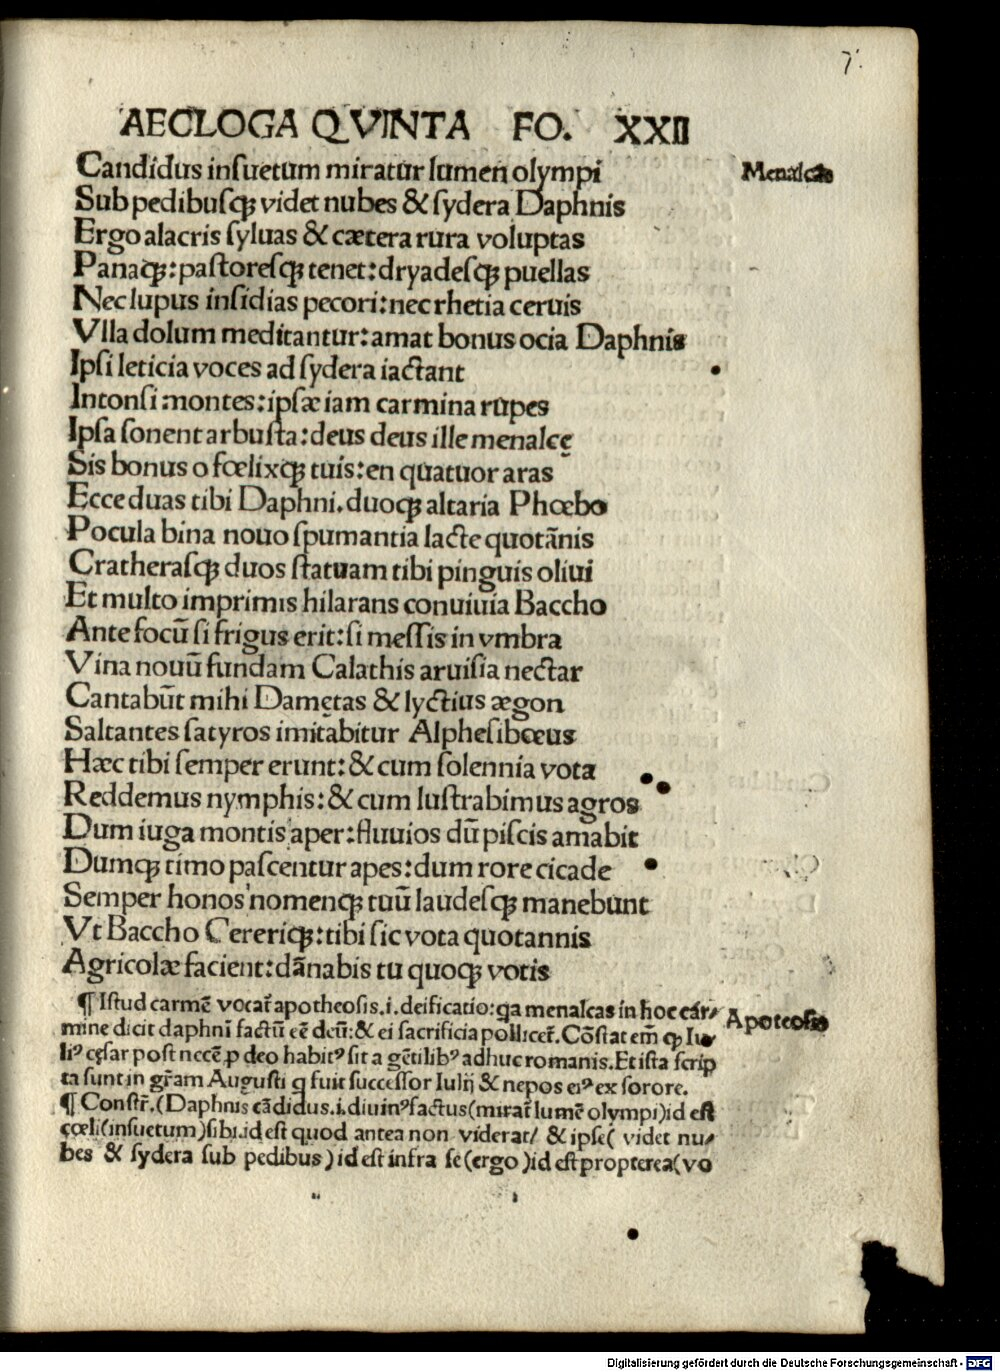 7.
AECLOGA QVINTA FO. XXII
Candidus inſuetum miratur lumen olympi
Menalcas
Sub pedibuſqꝫ videt nubes & ſydera Daphnis
Ergo alacris ſyluas & cætera rura voluptas
Panaqꝫ: paſtoreſqꝫ tenet: dryadeſqꝫ puellas
Nec lupus inſidias pecori: nec rhetia ceruis
Vlla dolum meditantur: amat bonus ocia Daphnis
Ipſi leticia voces ad ſydera iactant
Intonſi montes: ipſæ iam carmina rupes
Ipſa ſonent arbuſta: deus deus ille menalcę
Sis bonus o fœlixqꝫ tuis: en quatuor aras
Ecce duas tibi Daphni. duoqꝫ altaria Phœbo
Pocula bina nouo ſpumantia lacte quotãnis
Cratheraſqꝫ duos ſtatuam tibi pinguis oliui
Et multo imprimis hilarans conuiuia Baccho
Ante focũ ſi frigus erit: ſi meſſis in vmbra
Vina nouũ fundam Calathis aruiſia nectar
Cantabũt mihi Damętas & lyctius ægon
Saltantes ſatyros imitabitur Alpheſibœus
Hæc tibi ſemper erunt: & cum ſolennia vota
Reddemus nymphis: & cum luſtrabimus agros
Dum iuga montis aper: fluuios dũ piſcis amabit
Dumqꝫ timo paſcentur apes: dum rore cicade
Semper honos nomenqꝫ tuũ laudeſqꝫ manebunt
Vt Baccho Cereriqꝫ: tibi ſic vota quotannis
Agricolæ facient: dãnabis tu quoqꝫ votis
¶ Iſtud carmẽ vocat̃ apotheoſis .i. deificatio: qa menalcas in hoc car⸗
Apoteoſis
mine dicit daphnĩ factũ eẽ deũ: & ei ſacrificia pollicet̃. Cõſtat em̃ ꝙ Iu⸗
liꝰ cęſar poſt necẽ ꝓ deo habitꝰ ſit a gẽtilibꝰ adhuc romanis. Et iſta ſcrip
ta ſunt in gr̃am Auguſti q fuit ſucceſſor Iulij & nepos eiꝰ ex ſorore.
¶ Conſtr̃. (Daphnis cãdidus .i. diuinꝰ factus (mirat̃ lumẽ olympi) id eſt
cœli (inſuetum) ſibi. id eſt quod antea non viderat/ & ipſe ( videt nu⸗
bes & ſydera ſub pedibus) id eſt infra ſe (ergo) id eſt propterea (vo
Digitalisierung gefördert durch die Deutsche Forschungsgemeinschaft - DFG